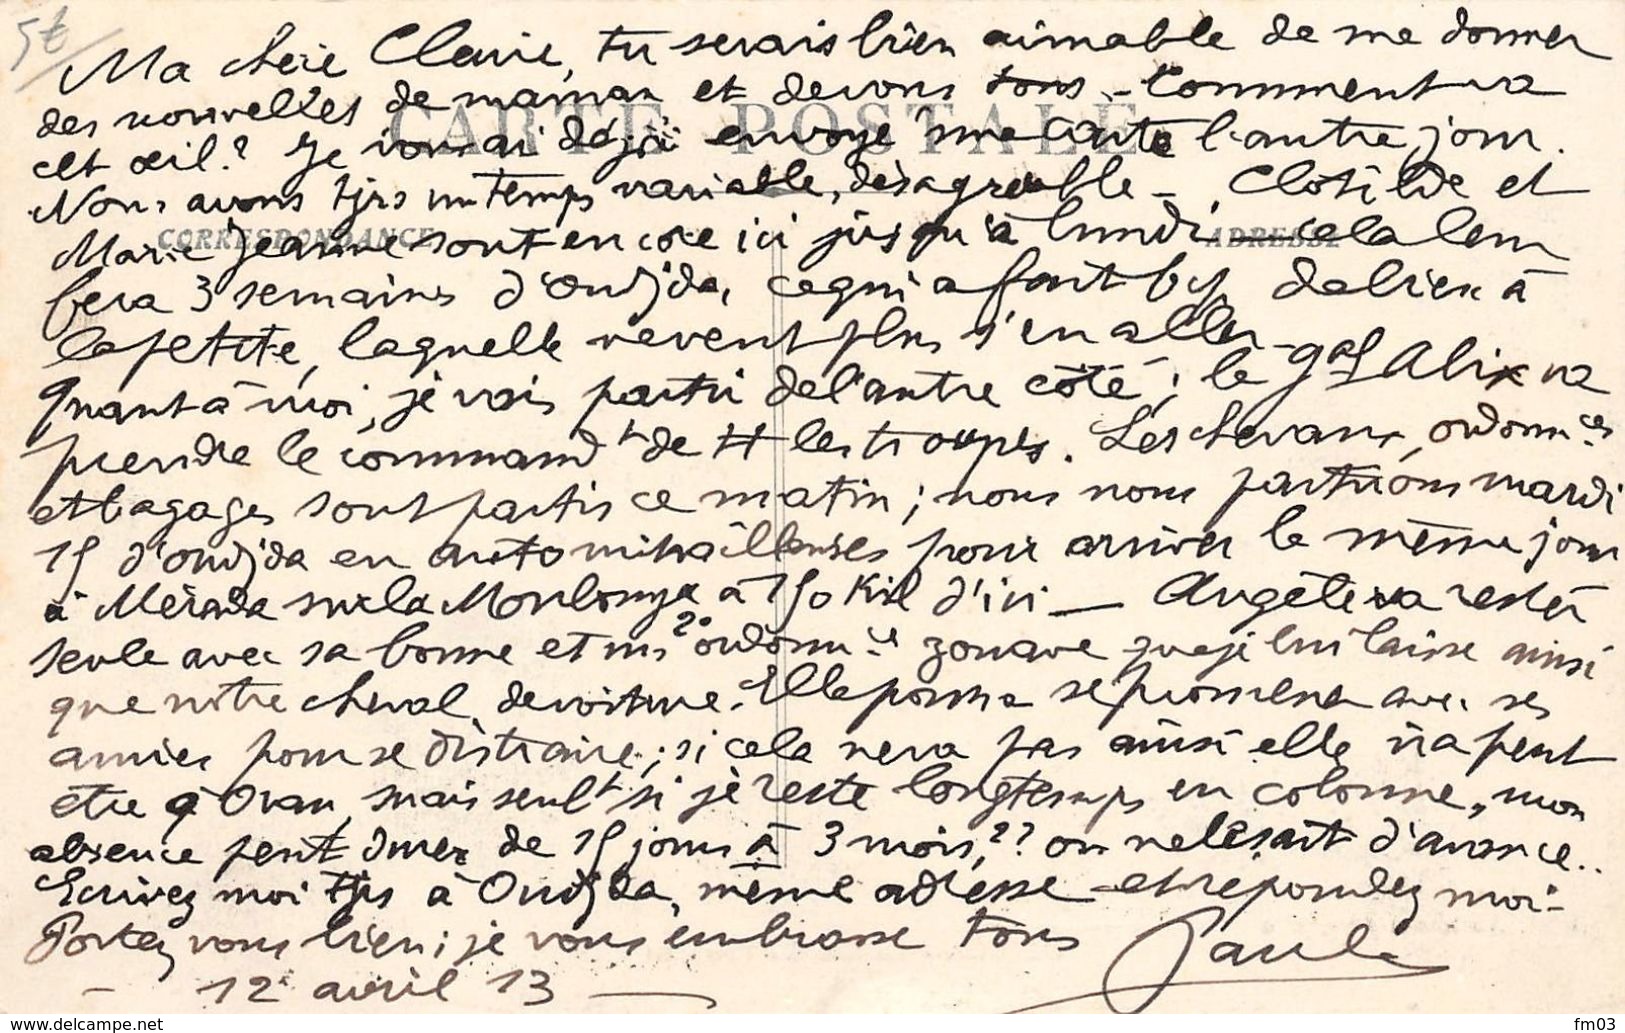 5€
Ma chère Claire, tu serais bien aimable de me donner
des nouvelles de maman et de vous tous - Comment va
cet œil? Je vous ai déjà envoyé une carte l'autre jour.
CARTE POSTALE
Nous avons tjrs un temps variable, désagréable - Clotilde et
CORRESPONDANCE
ADRESSE
Marie Jeanne sont encore ici jusqu'à lundi - cela leur
fera 3 semaines d'Oudjda, ce qui a fait bcp de bien à
la petite, laquelle ne veut plus s'en aller -
Quant à moi, je vais partir de l'autre côté ; le gal Alix va
prendre le commandt de tt les troupes. Les chevaux, ordonnces
et bagages sont partis ce matin ; nous nous partirons mardi
15 d'Oudjda en automitrailleuses pour arriver le même jour
à Mérada sur la Moulouya à 150 Kil d'ici - Angèle va rester
seule avec sa bonne et un 2e ordonnce zouave que je lui laisse ainsi
que notre cheval de voiture. Elle pourra se promener avec ses
amies pour se distraire ; si cela ne va pas ainsi elle ira peut
être à Oran, mais seult si je reste longtemps en colonne, mon
absence peut durer de 15 jours à 3 mois, ?? on ne le sait d'avance..
Ecrivez moi tjrs à Oudjda, même adresse - et répondez moi -
Portez vous bien ; je vous embrasse tous Paul
- 12 avril 13 -
www.delcampe.net
fm03